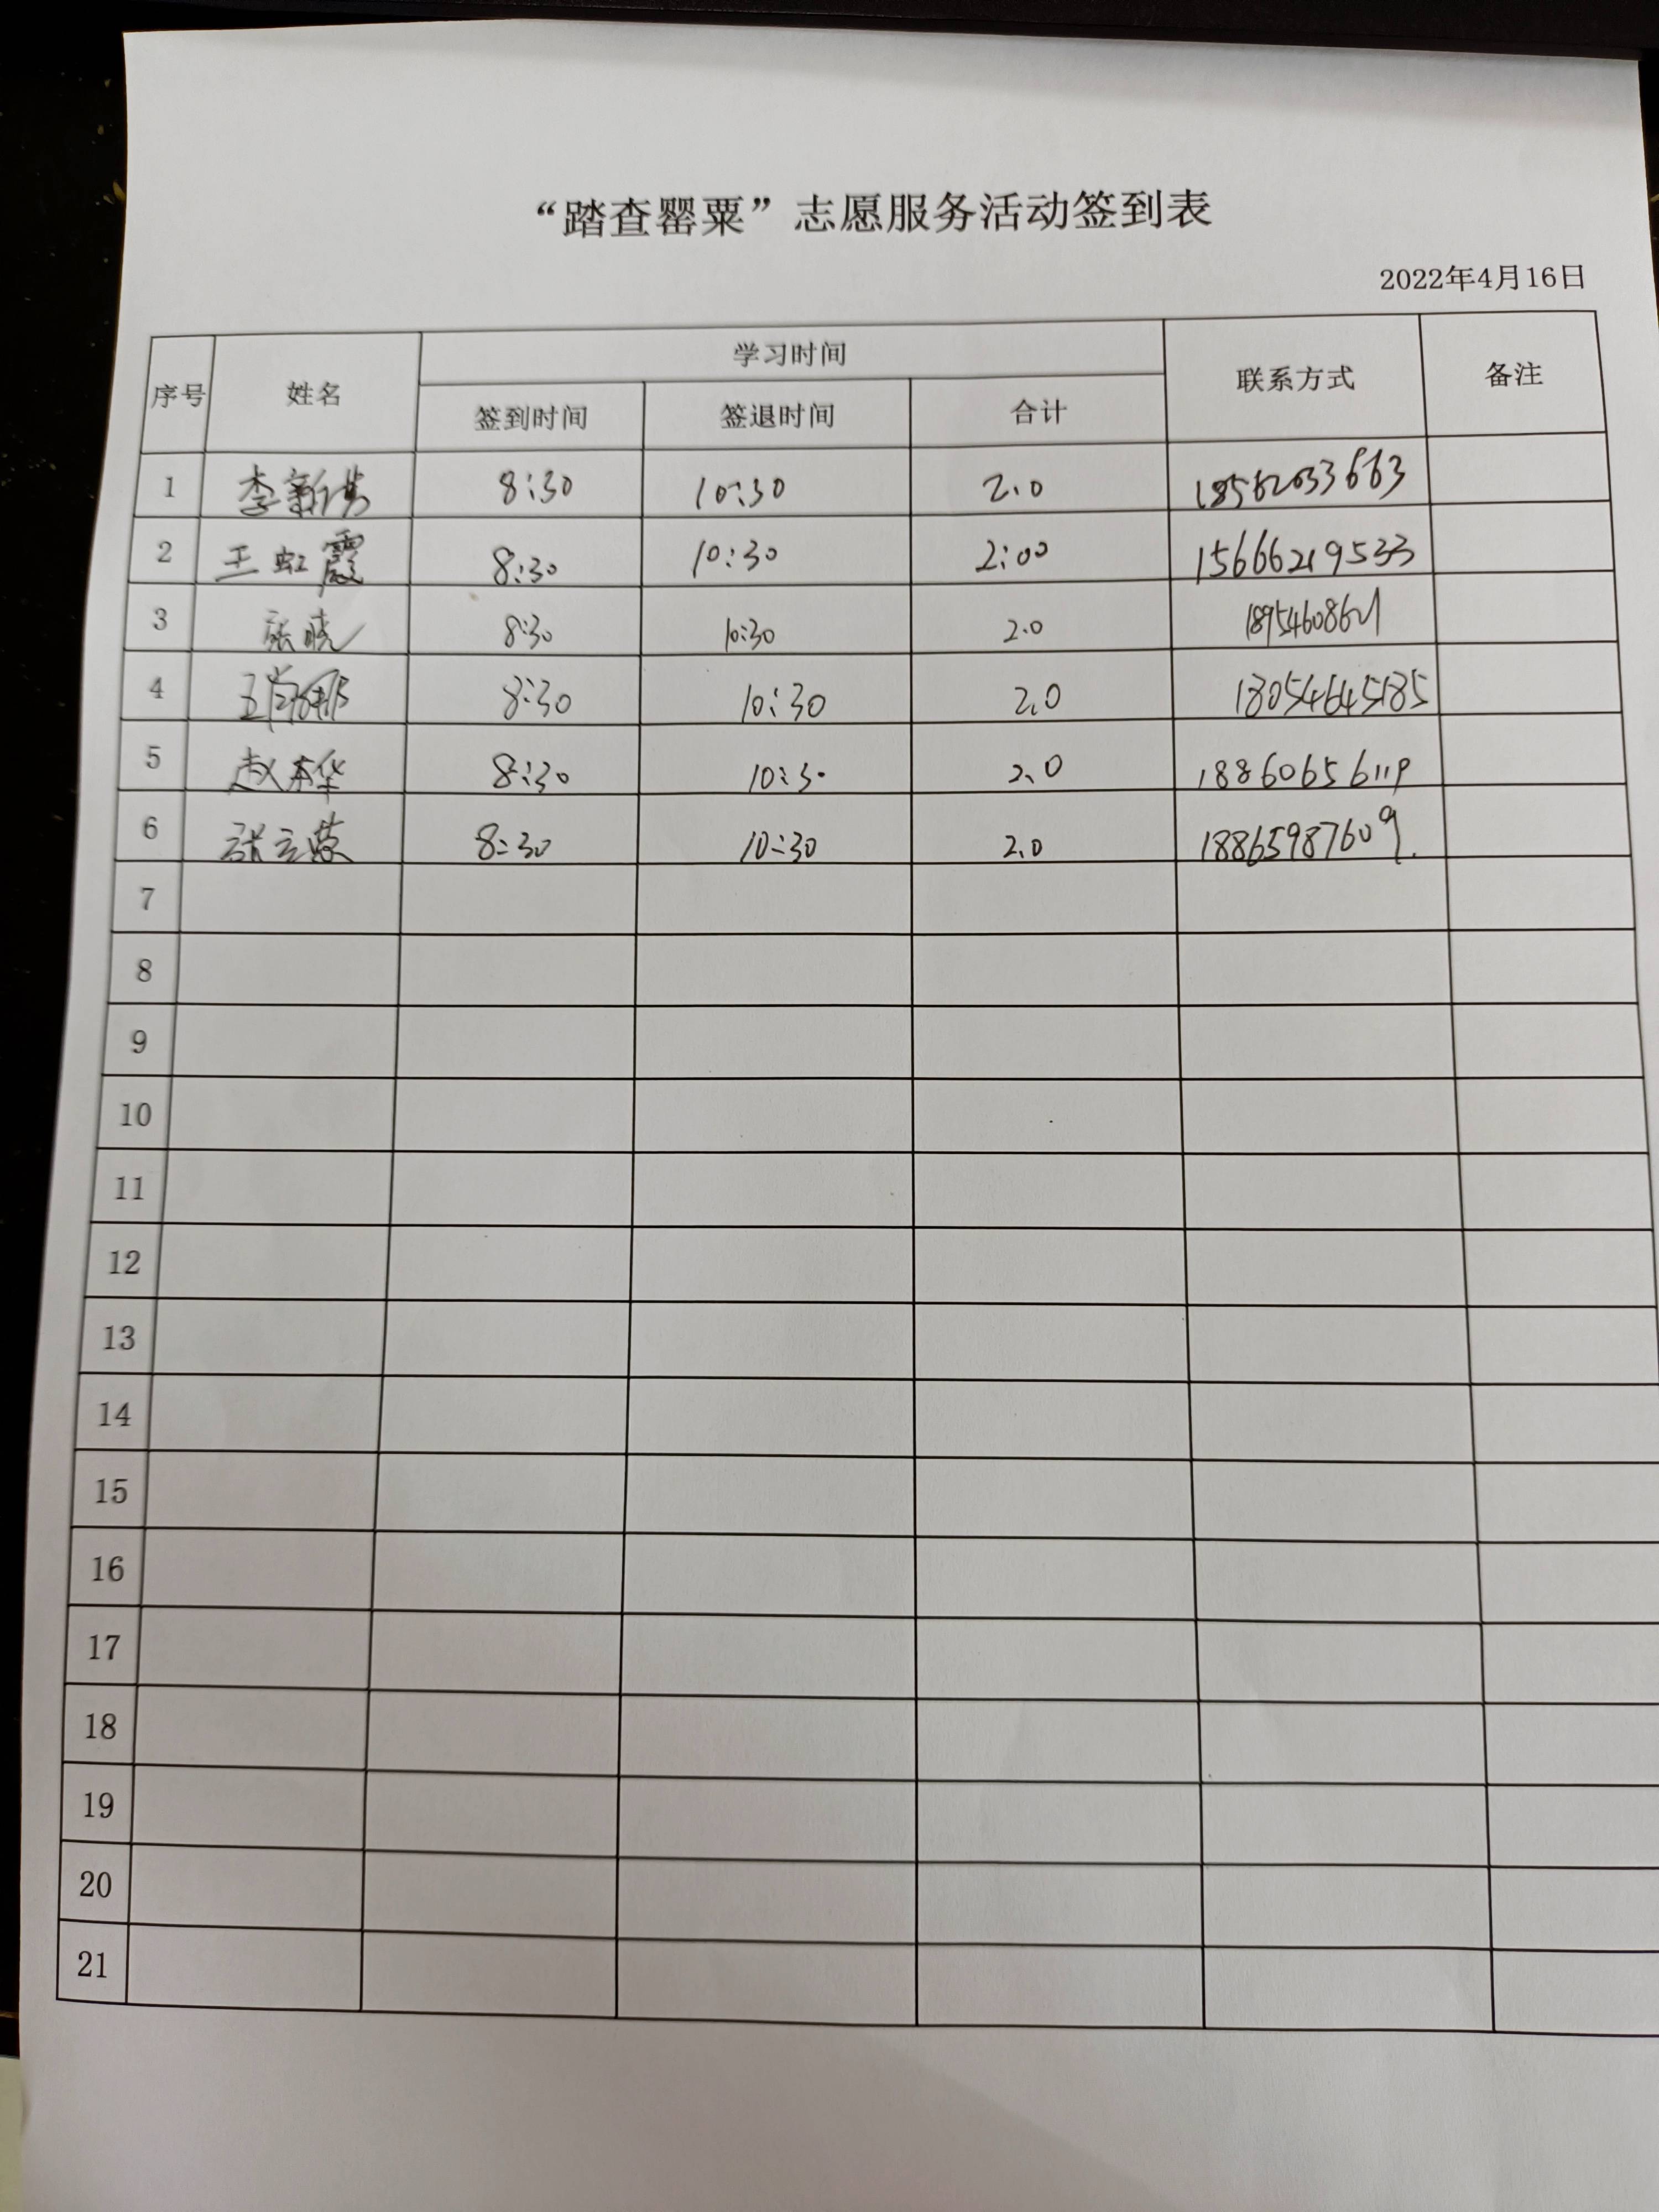 “踏查罂粟”志愿服务活动签到表
2022年4月16日
序号 姓名 学习时间 联系方式 备注
签到时间 签退时间 合计
1 李新伟 8:30 10:30 2.0
2 王虹霞 8:30 10:30 2:00 15666219533
3 张晓 8:30 10:30 2.0
4 8:30 10:30 2.0 18054645185
5 赵本华 8:30 10:30 2.0
6 张立 8:30 10:30 2.0 18865987609
7
8
9
10
11
12
13
14
15
16
17
18
19
20
21